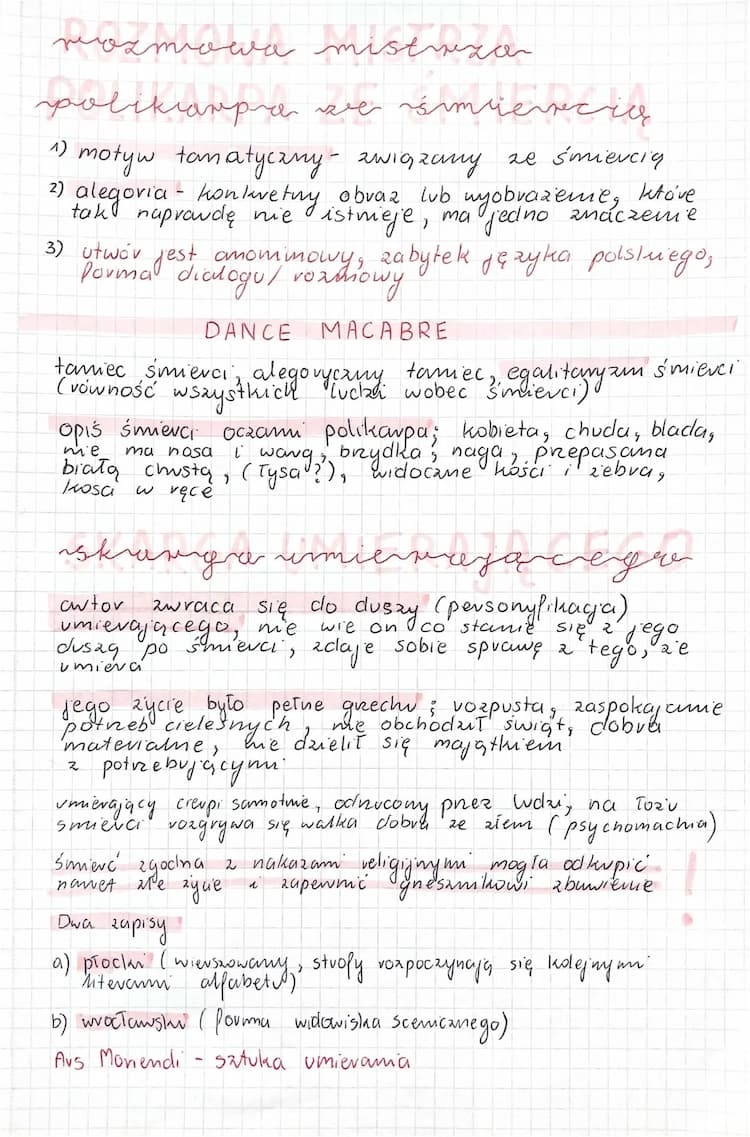 ROZMOWA MISTRZA
rozmowa mistrza
POLIKARPA ZE ŚMIERCIĄ
polikarpa ze śmiercią
1) motyw tanatyczny - związany ze śmiercią
2) alegoria - konkretny obraz lub wyobrażenie, które
tak naprawdę nie istnieje, ma jedno znaczenie
3) utwór jest anonimowy, zabytek języka polskiego,
forma dialogu/rozmowy
DANCE MACABRE
taniec śmierci, alegoryczny taniec, egalitaryzm śmierci
(równość wszystkich ludzi wobec śmierci)
opis śmierci oczami polikarpa; kobieta, chuda, blada,
nie ma nosa i warg, brzydka, naga, przepasana
białą chustą, (łysa?), widoczne kości i żebra,
kosa w ręce
SKARGA UMIERAJĄCEGO
skarga umierającego
autor zwraca się do duszy (personyfikacja)
umierającego, nie wie on co stanie się z jego
duszą po śmierci, zdaje sobie sprawę z tego, że
umiera
jego życie było pełne grzechu; rozpusta, zaspokajanie
potrzeb cielesnych, nie obchodził świąt, dobra
materialne, nie dzielił się majątkiem
z potrzebującymi
umierający cierpi samotnie, odrzucony przez ludzi, na łożu
śmierci rozgrywa się walka dobra ze złem (psychomachia)
śmierć zgodna z nakazami religijnymi mogła odkupić
nawet złe życie i zapewnić grzesznikowi zbawienie !
Dwa zapisy
a) płocki (wierszowany, strofy rozpoczynają się kolejnymi
literami alfabetu)
b) wrocławski (forma widowiska scenicznego)
Ars Moriendi - sztuka umierania